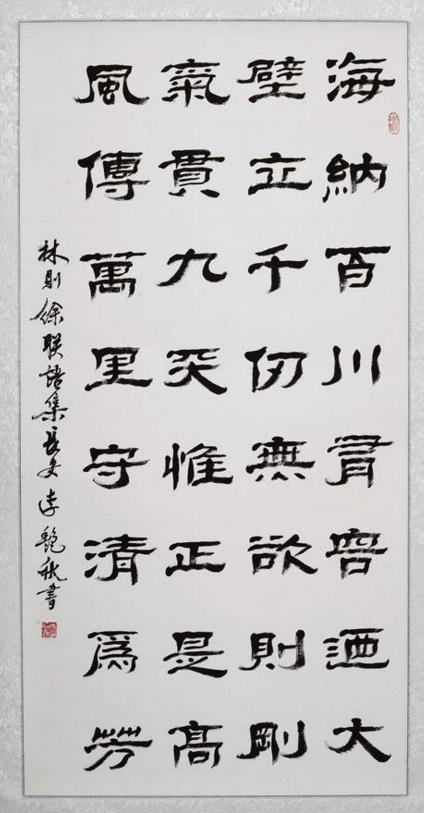 海納百川有容迺大
壁立千仞無欲則剛
氣貫九天惟正是高
風傳萬里守清為芳
林則徐聯語集長文李艷秋書